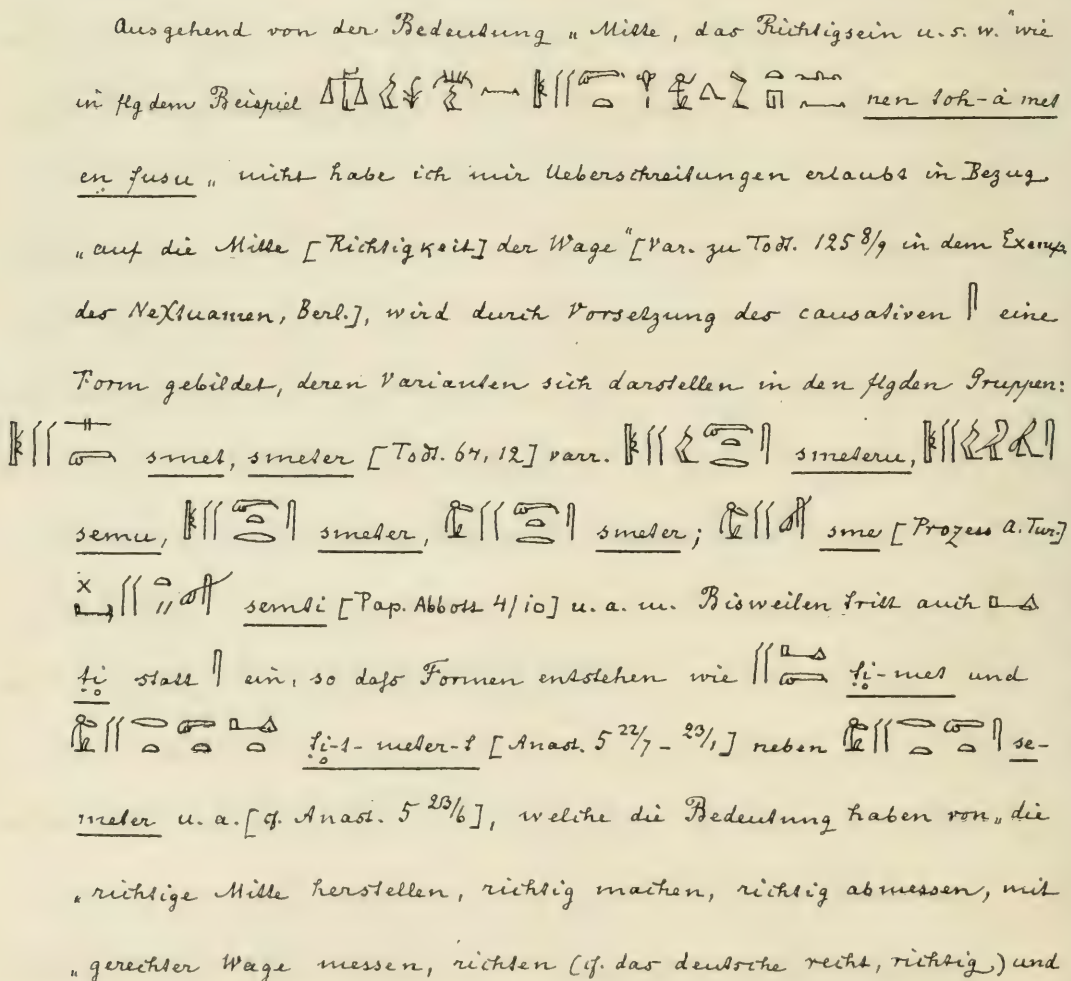 Ausgehend von der Bedeutung „Mitte, das Richtigsein u. s. w." wie
in flgdem Beispiel nen toh-à met
en fusu „nicht habe ich mir Ueberschreitungen erlaubt in Bezug
„auf die Mitte [Richtigkeit] der Wage" [Var. zu Todt. 125 8/9 in dem Exemp.
des NeXtuamen, Berl.], wird durch Vorsetzung des causativen 𓋴 eine
Form gebildet, deren Varianten sich darstellen in den flgden Gruppen:
smet, smeter [Todt. 64, 12] varr. smeteru,
semu, smeter, smeter; sme [Prozess a. Tur.]
semti [Pap. Abbott 4/10] u. a. m. Bisweilen tritt auch
ṭi statt 𓋴 ein, so dass Formen entstehen wie ṭi-met und
ṭi-t-meter-t [Anast. 5 22/7 - 23/1] neben se-
meter u. a. [cf. Anast. 5 23/6], welche die Bedeutung haben von „die
„richtige Mitte herstellen, richtig machen, richtig abmessen, mit
„gerechter Wage messen, richten (cf. das deutsche recht, richtig) und